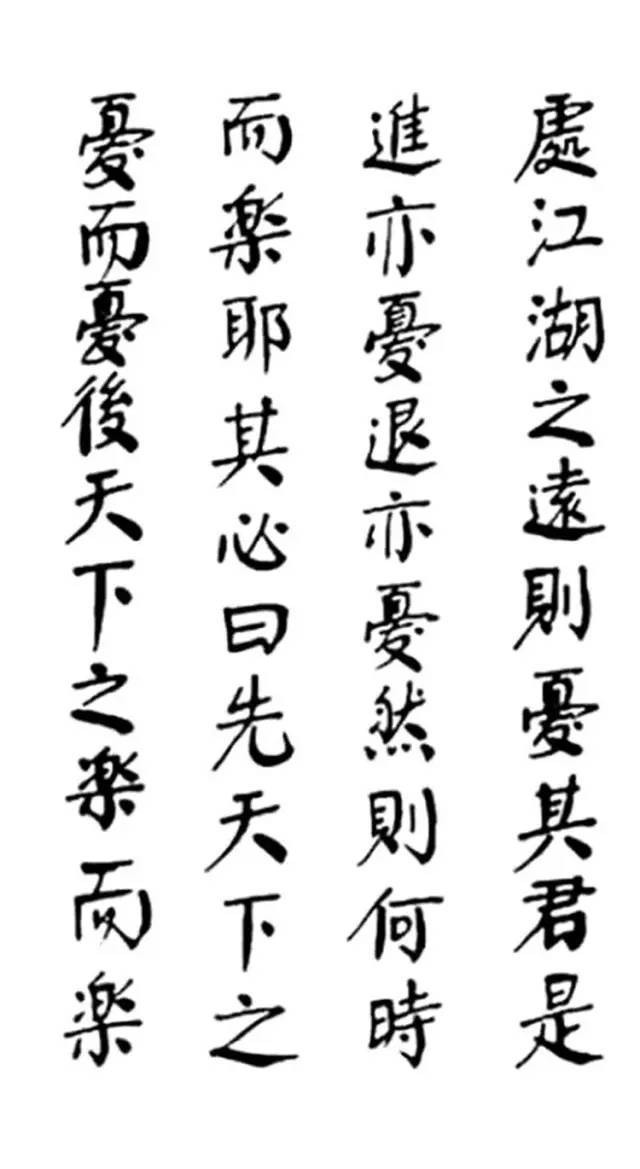 處江湖之遠則憂其君是
進亦憂退亦憂然則何時
而楽耶其必曰先天下之
憂而憂後天下之楽而楽